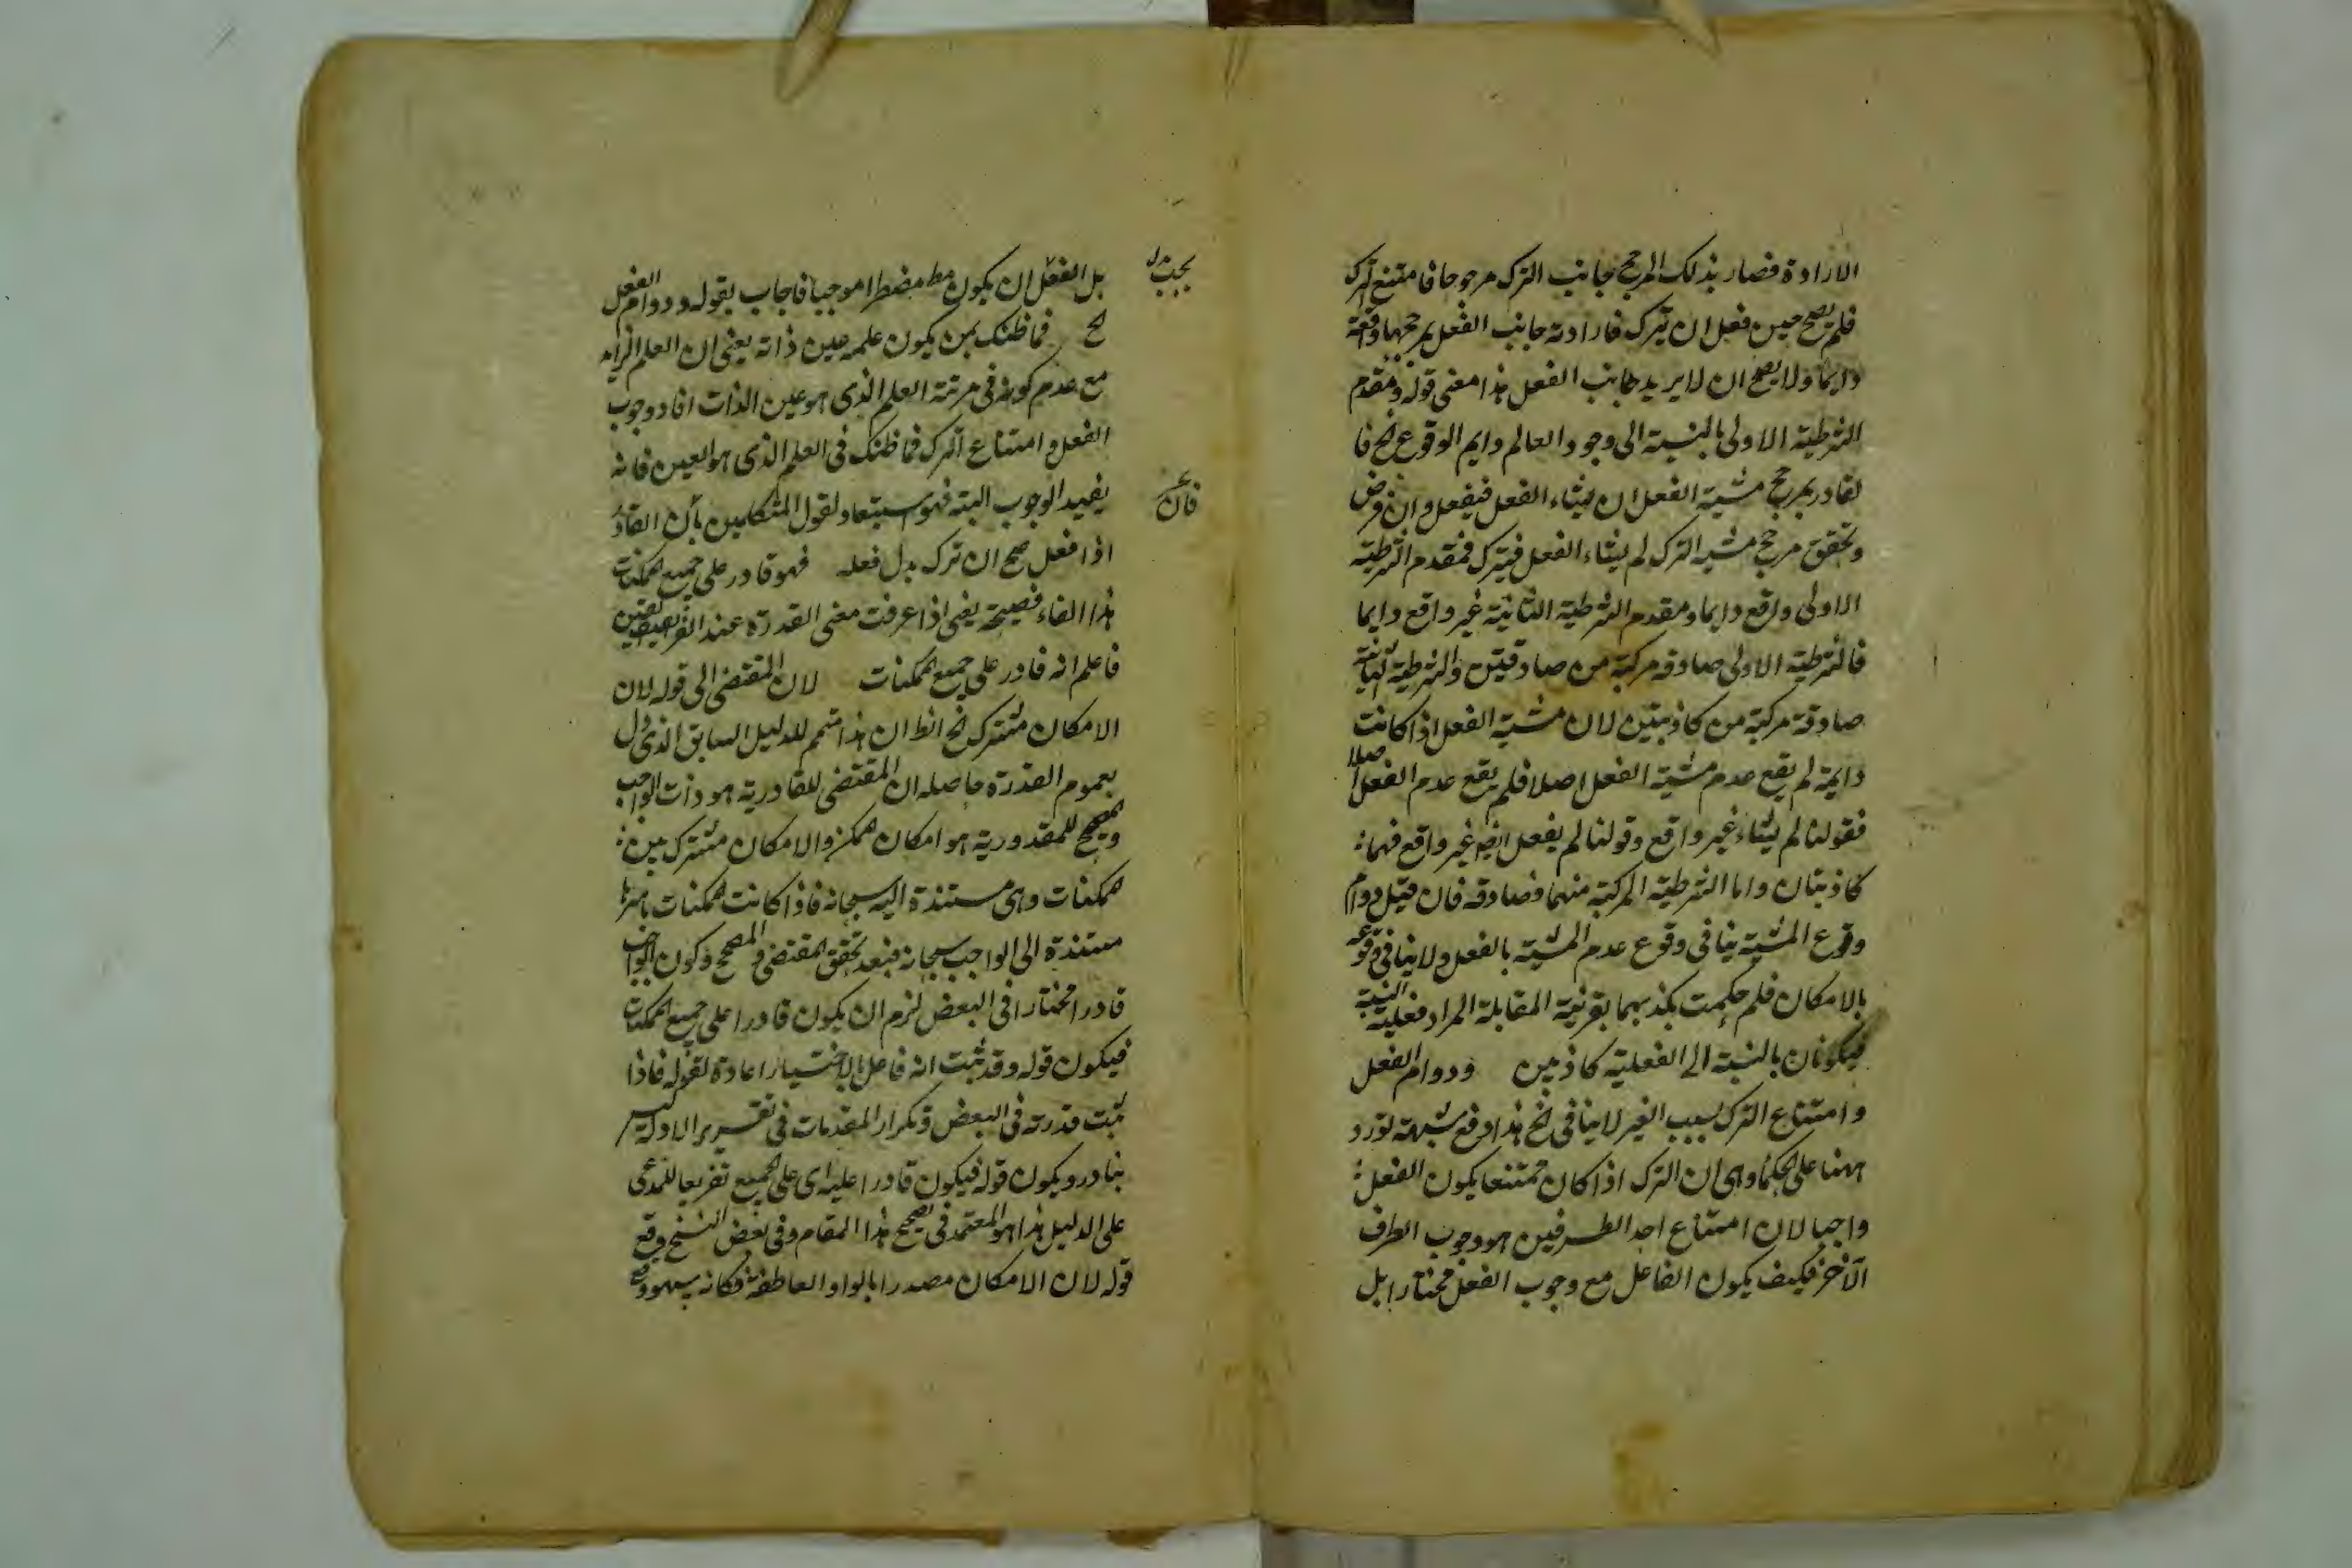 الارادة فصار بذلك المرجح جانب الترك مرجوحا فامتنع الترك
فلم يصح حين فعل ان يترك فارادته جانب الفعل يرجحها واقعة
دايما ولا يصح ان لا يريد جانب الفعل هذا معنى قوله ومقدم
الشرطية الاولى بالنسبة الى وجود العالم دايم الوقوع الخ فا
لقادر بمرجح مشية الفعل ان يشاء الفعل فيفعل وان فرض
وتحقق مرجح مشية الترك لم يشاء الفعل فيترك فمقدم الشرطية
الاولى واقع دايما ومقدم الشرطية الثانية غير واقع دايما
فالشرطية الاولى صادقه مركبة من صادقتين والشرطية الثانية
صادقة مركبة من كاذبتين لان مشية الفعل اذا كانت
دايمة لم يقع عدم مشية الفعل اصلا فلم يقع عدم الفعل اصلا
فقولنا لم يشاء غير واقع وقولنا لم يفعل ايض غير واقع فهما
كاذبتان واما الشرطية المركبة منهما فصادقه فان قيل دوام
وقوع المشية ينافى وقوع عدم المشية بالفعل ولا ينافى وقوعه
بالامكان فلم حكمت بكذبهما بقرنية المقابلة المراد فعلية النسبة
فيكونان بالنسبة الى الفعلية كاذبين ودوام الفعل
وامتناع الترك بسبب الغير لا ينافى الخ هذا دفع شبهة تورد
ههنا على الحكما وهى ان الترك اذا كان ممتنعا يكون الفعل
واجبا لان امتناع احد الطرفين هو وجوب الطرف
الآخر فكيف يكون الفاعل مع وجوب الفعل مختارا بل
يجب
بل الفعل ان يكون مضطرا موجبا فاجاب بقوله ودوام الفعل
الخ فما ظنك بمن يكون علمه عين ذاته يعنى ان العلم الزايد
مع عدم كونه فى مرتبة العلم الذى هو عين الذات افاد وجوب
الفعل وامتناع الترك فما ظنك فى العلم الذى هو العين فانه
يفيد الوجوب البتة فهو استبعاد لقول المتكلمين بأن القادر
فان
اذا فعل صح ان ترك بدل فعله فهو قادر على جميع الممكنات
هذا الفاء فصيحة يعنى اذا عرفت معنى القدرة عند الفريقين
فاعلم انه قادر على جميع الممكنات لان المقتضى الى قوله لان
الامكان مشترك الخ الظ ان هذا متمم للدليل السابق الذى دل
بعموم القدرة حاصله ان المقتضى للقادرية هو ذات الواجب
والمصحح للمقدورية هو امكان الممكن والامكان مشترك بين
الممكنات وهى مستندة اليه سبحانه فاذا كانت الممكنات باسرها
مستندة الى الواجب سبحانه فبعد تحقق المقتضى والمصحح وكون الواجب
قادرا مختارا فى البعض لزم ان يكون قادرا على جميع الممكنات
فيكون قوله وقد ثبت انه فاعل بالاختيار اعادة لقوله فاذا
ثبت قدرته فى البعض وتكرار المقدمات فى تقرير الادلة ليس
بنادر ويكون قوله فيكون قادرا عليه اى على الجميع تفريعا للمدعى
على الدليل هذا هو المعتمد فى تصحيح هذا المقام وفى بعض النسخ وقع
قوله لان الامكان مصدرا بالواو العاطفة فكانه سهو